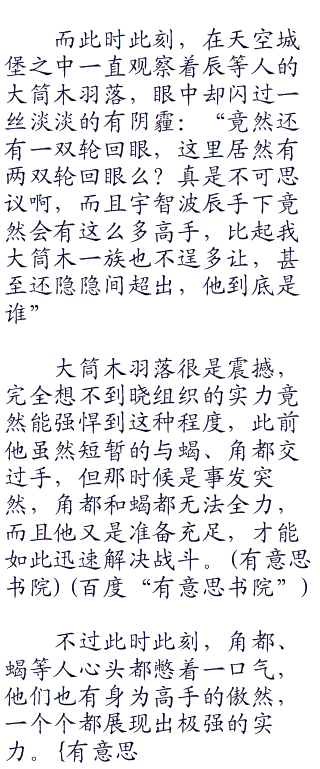 而此时此刻，在天空城
堡之中一直观察着辰等人的
大筒木羽落，眼中却闪过一
丝淡淡的有阴霾：“竟然还
有一双轮回眼，这里居然有
两双轮回眼么？真是不可思
议啊，而且宇智波辰手下竟
然会有这么多高手，比起我
大筒木一族也不逞多让，甚
至还隐隐间超出，他到底是
谁”
大筒木羽落很是震撼，
完全想不到晓组织的实力竟
然能强悍到这种程度，此前
他虽然短暂的与蝎、角都交
过手，但那时候是事发突
然，角都和蝎都无法全力，
而且他又是准备充足，才能
如此迅速解决战斗。(有意思
书院) (百度“有意思书院”)
不过此时此刻，角都、
蝎等人心头都憋着一口气，
他们也有身为高手的傲然，
一个个都展现出极强的实
力。{有意思